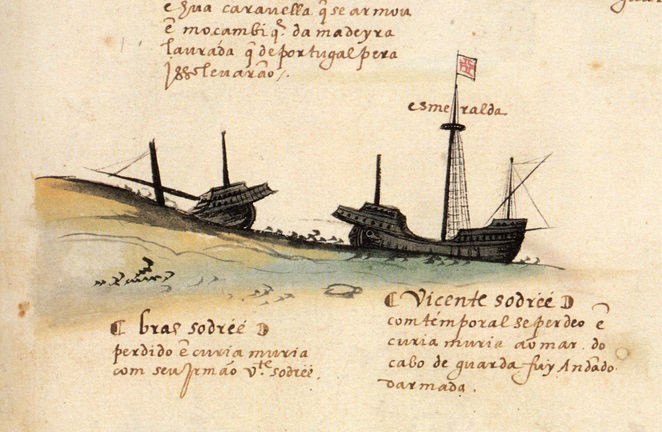 e hua caravella q̃ se armou
ẽ moçambiq̃. da madeyra
laurada q̃ de portugal pera
Isso levarão /.
esmeralda
bras sodreé
perdido ẽ curia muria
com seu Irmão vte sodreé.
Vicente sodreé
com temporal se perdeo ẽ
curia muria ao mar. do
cabo de guardafuy Andãdo
darmada.